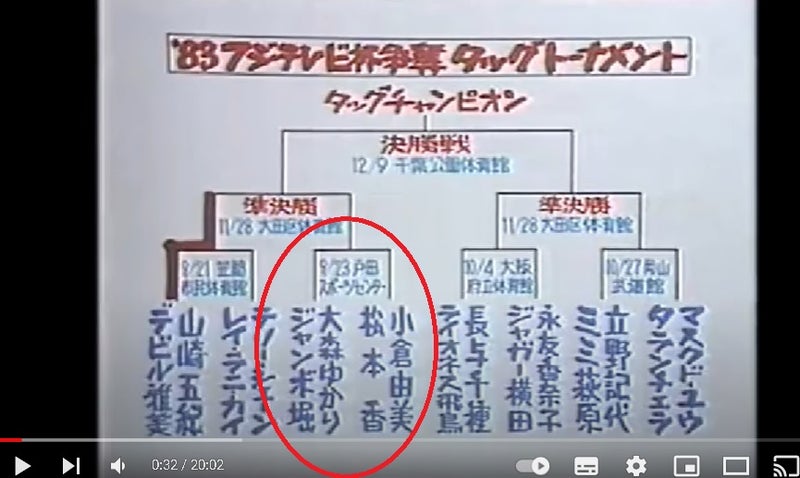 '83フジテレビ杯争奪 タッグトーナメント
タッグチャンピオン
決勝戦
12/9 千葉公園体育館
準決勝
11/28 大田区体育館
準決勝
11/28 大田区体育館
9/23 戸田
スポーツセンター
10/4 大阪
府立体育館
10/27 岡山
武道館
市民体育館
デビル雅美
山崎五紀
ジャンボ堀
大森ゆかり
松本香
小倉由美
ライオネス飛鳥
長与千種
ジャガー横田
永友香奈子
ミミ萩原
立野記代
タランチェラ
マスクド・ユウ
0:32 / 20:02